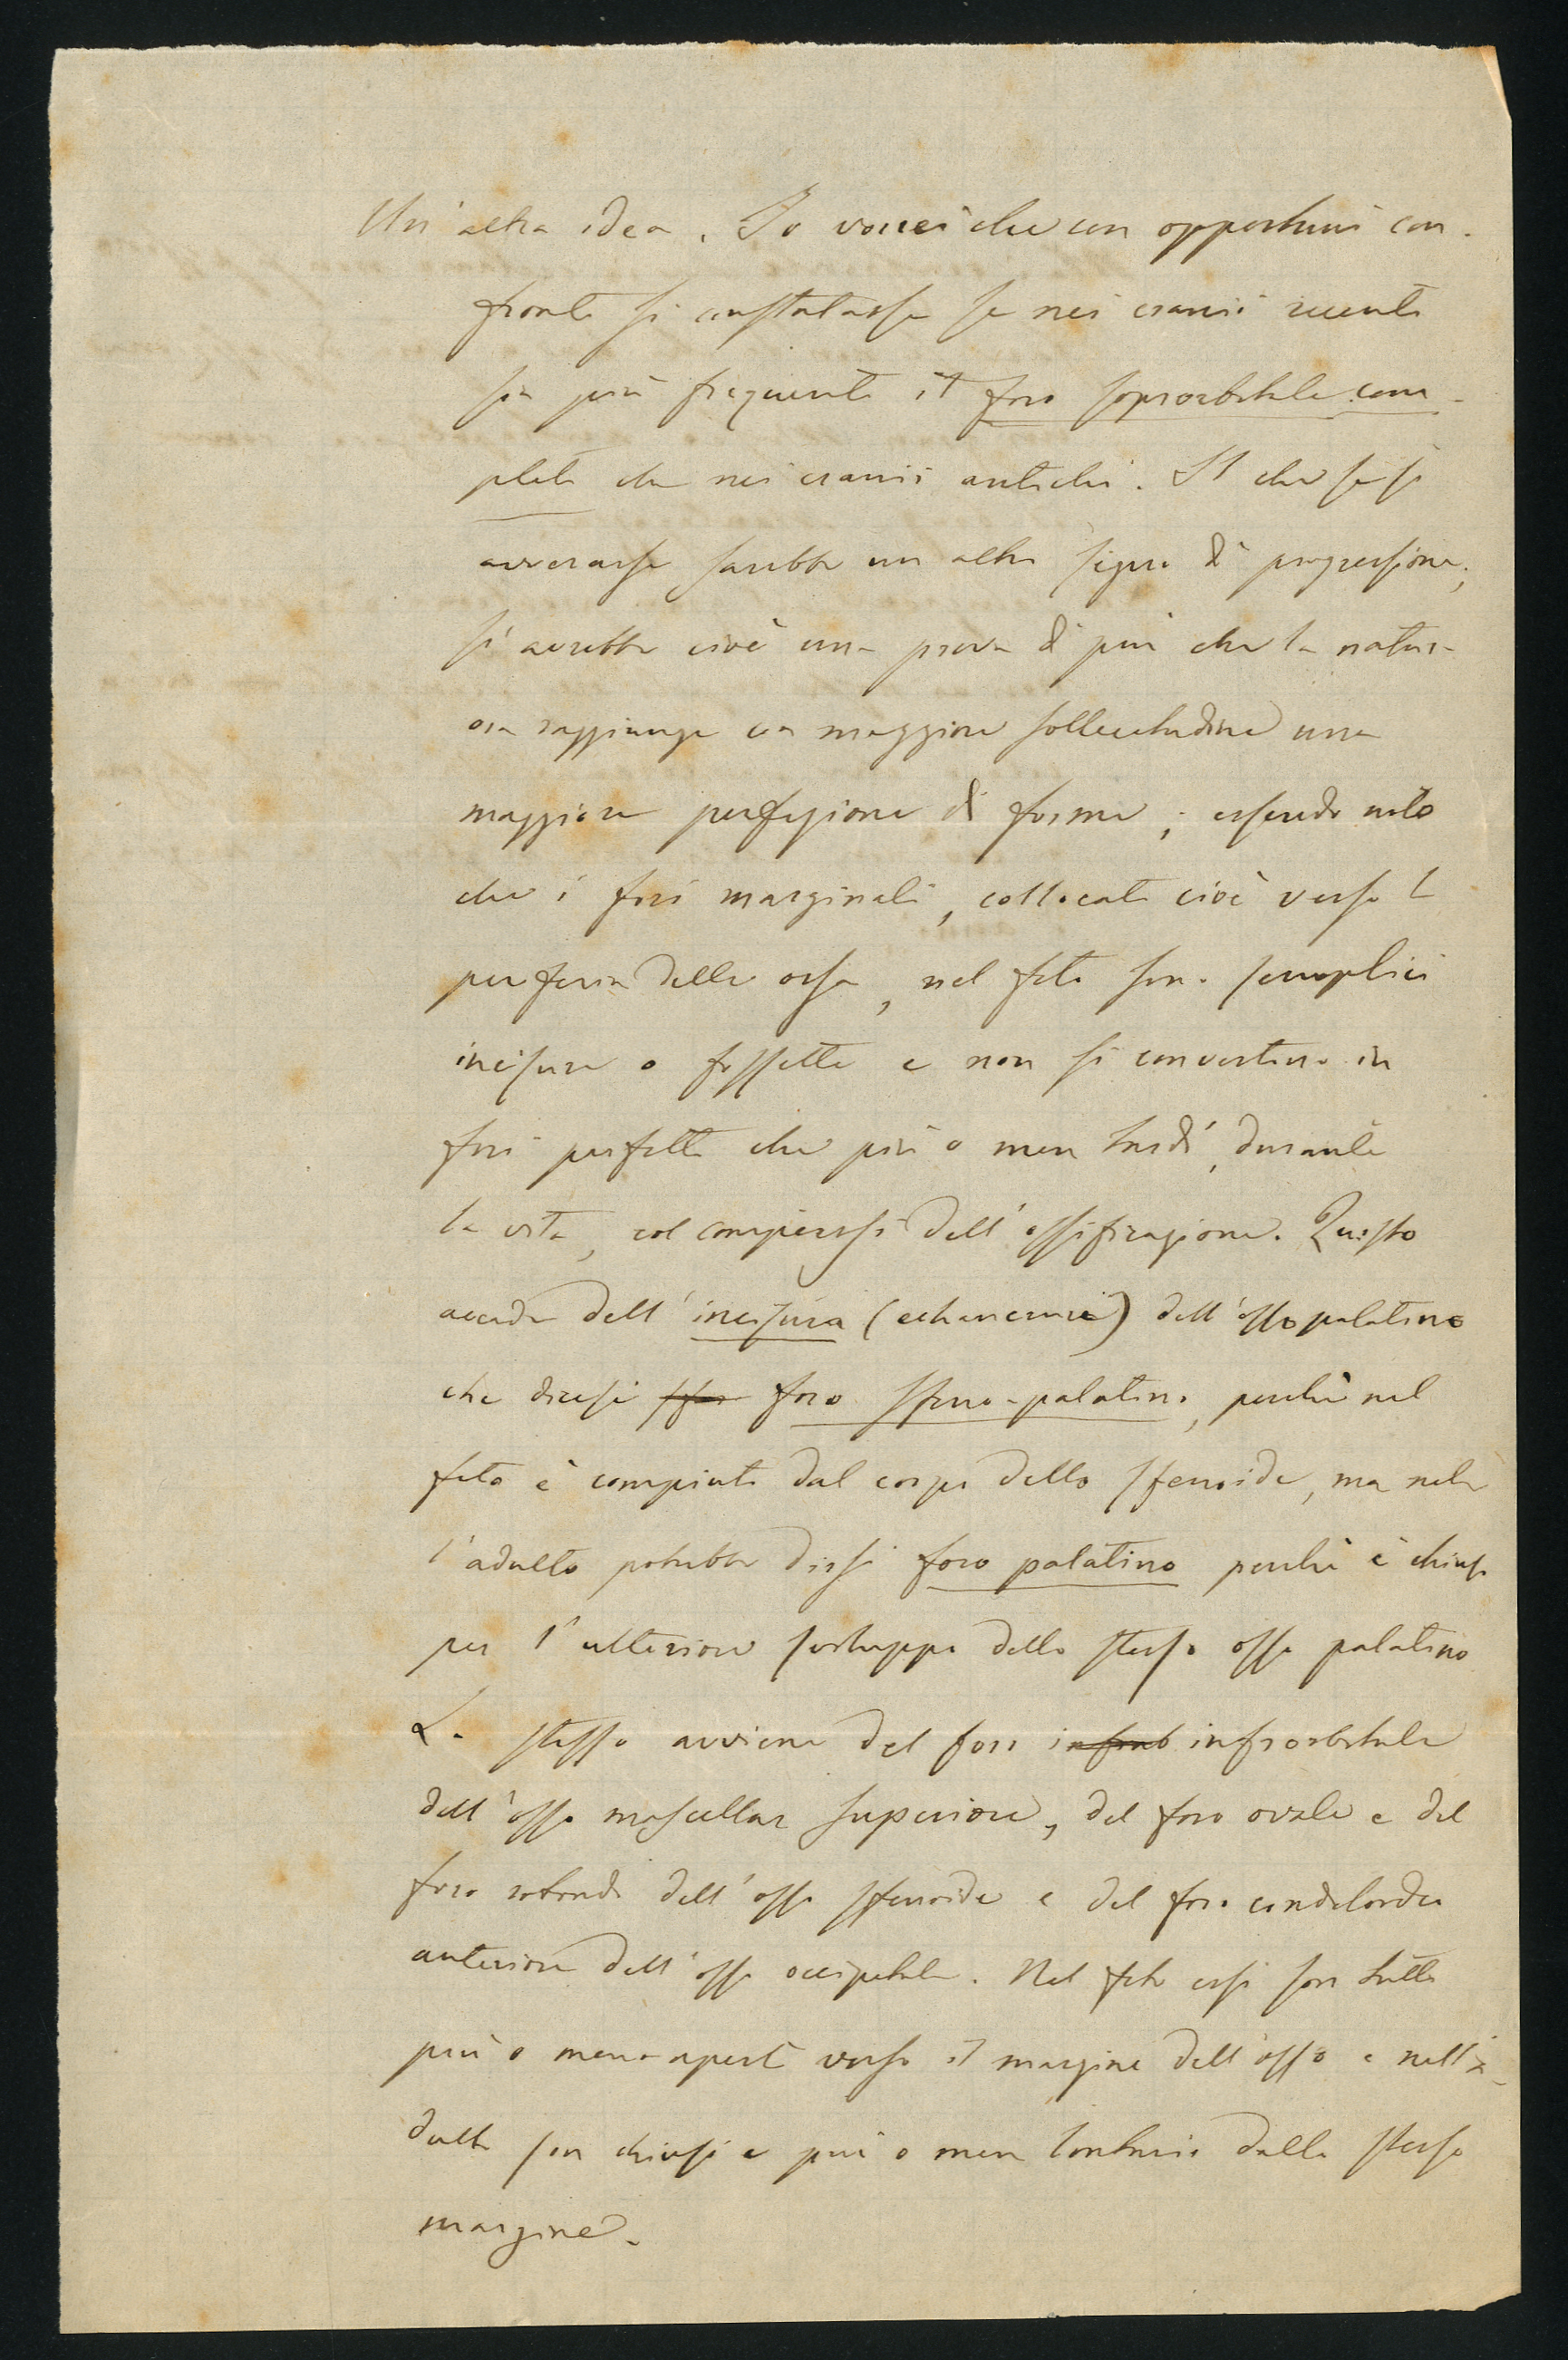 Un'altra idea. Io vorrei che con opportuni con-
fronti si constatasse se nei cranii recenti
sia più frequente il foro soprorbitale com-
pleto che nei cranii antichi. Il che se si
avverasse sarebbe un altro segno di progressione;
si avrebbe cioè una prova di più che la natura
ora raggiunge con maggiore sollecitudine una
maggiore perfezione di forme; essendo noto
che i fori marginali, collocati cioè verso la
periferia delle ossa, nel feto sono semplici
incisure o fossette e non si convertono in
fori perfetti che più o men tardi, durante
la vita, col compiersi dell'ossificazione. Questo
accade dell'incisura (echancrure) dell'osso palatino
che dicesi foro sfeno-palatino, perchè nel
feto è compiuto dal corpo dello sfenoide, ma nel-
l'adulto potrebbe dirsi foro palatino perchè è chiuso
per l'ulteriore sviluppo dello stesso osso palatino
Lo stesso avviene del foro infraob infraorbitale
dell'osso mascellare superiore, del foro ovale e del
foro rotondo dell'osso sfenoide e del foro condiloideo
anteriore dell'osso occipitale. Nel feto essi son tutti
più o meno aperti verso il margine dell'osso e nell'a-
dulto son chiusi e più o men lontani dallo stesso
margine.